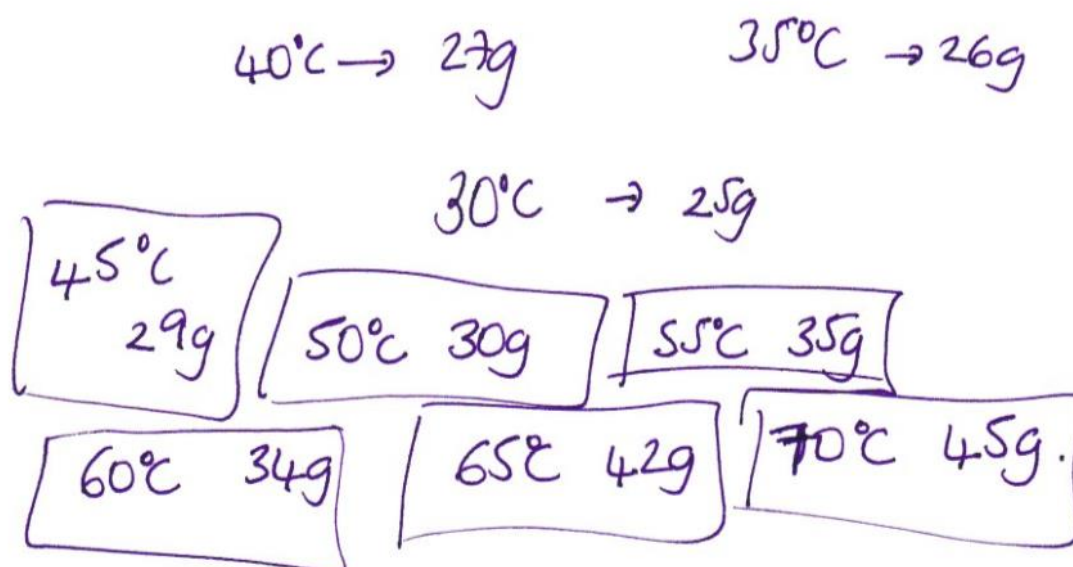 40°C → 27g 35°C → 26g
30°C → 25g
45°C
29g
50°C 30g
55°C 35g
60°C 34g
65°C 42g
70°C 45g.